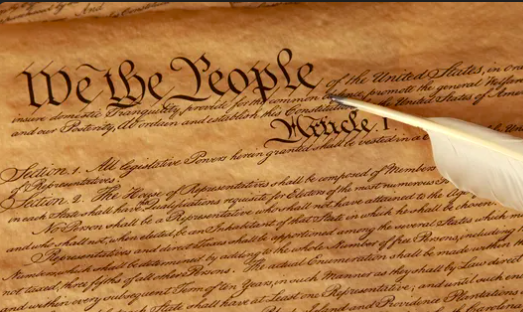 We the People of the United States, in o
insure domestic Tranquility, provide for the common defence, promote the general Welfare
and our Posterity, do ordain and establish this Constitution for the United States of Ame
Article. I.
Section. 1. All legislative Powers herein granted shall be vested in a C
of Representatives.
Section. 2. The House of Representatives shall be composed of Members
in each State shall have Qualifications requisite for Electors of the most numerous
No Person shall be a Representative who shall not have attained to the Age
and who shall not, when elected, be an Inhabitant of that State in which he shall be chosen
Representatives and direct Taxes shall be apportioned among the several States which m
Numbers, which shall be determined by adding to the whole Number of free Persons, including
not taxed, three fifths of all other Persons. The actual Enumeration shall be made within
and within every subsequent Term of ten Years, in such Manner as they shall by Law direct
State shall have at Least one Representative; and until such en
Plantations